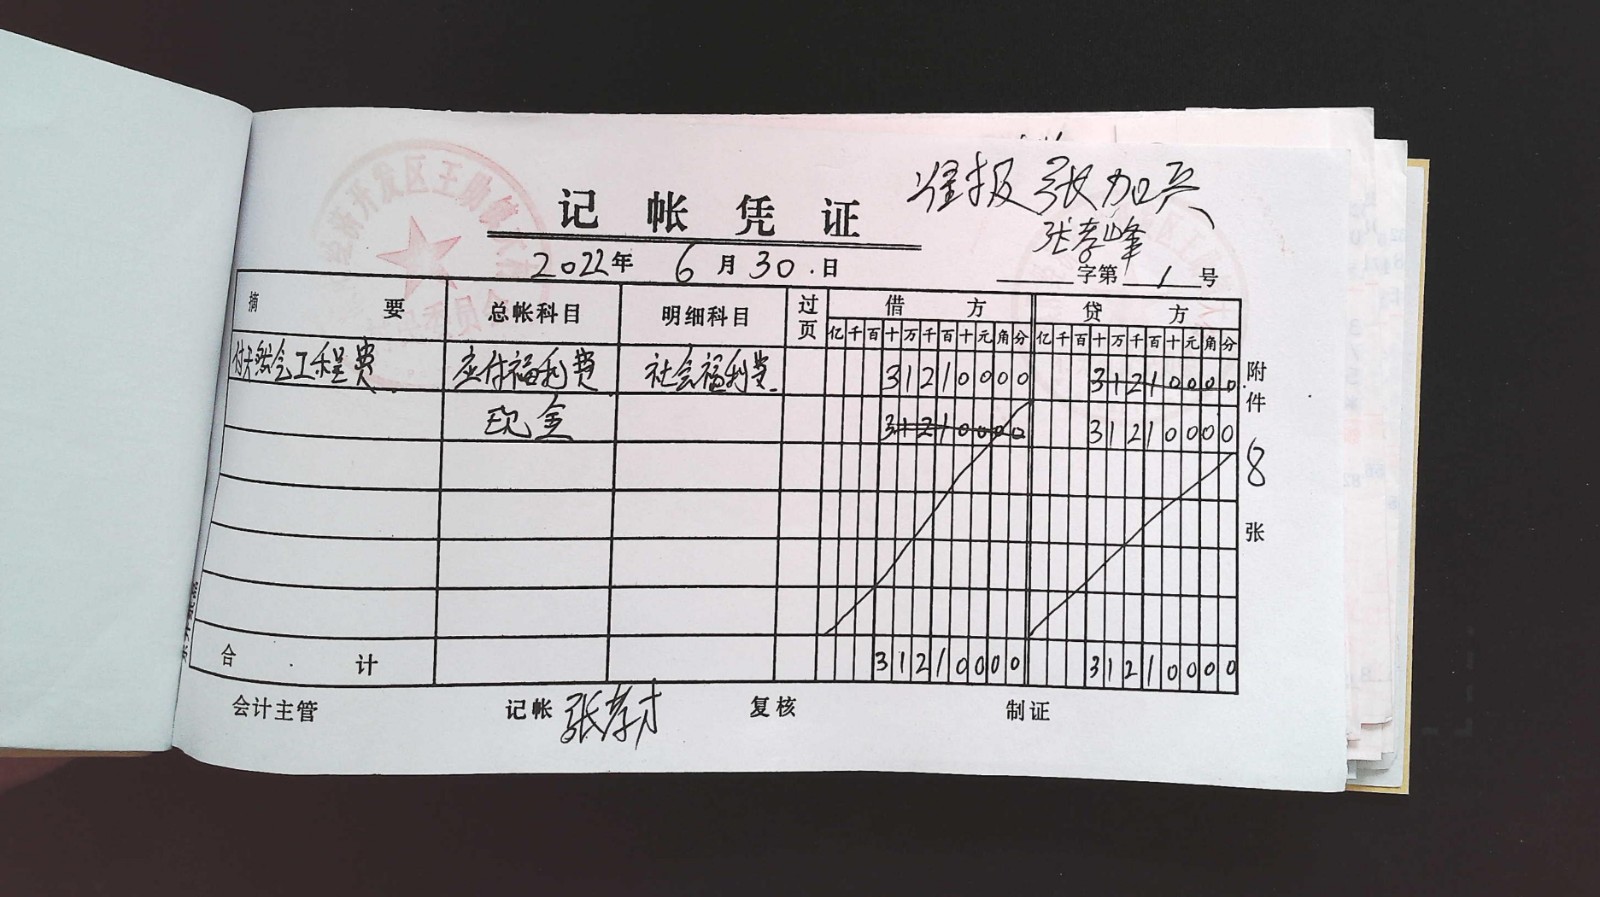 经济开发区王助镇
记帐凭证
准报 张加兵
张孝峰
2022年 6月30.日
字第 1 号
摘要 总帐科目 明细科目 过页 借方 贷方
亿千百十万千百十元角分 亿千百十万千百十元角分
付天然会工程费 应付福利费 社会福利费 31210000 31210000
现金 31210000 31210000
附件 8 张
合计 31210000 31210000
会计主管 记帐 张孝才 复核 制证